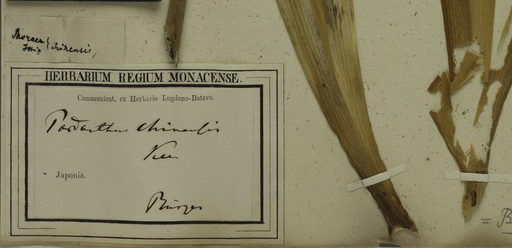 Moraea chinensis,
HERBARIUM REGIUM MONACENSE.
Communicat. ex Herbario Lugduno-Batavo.
Pardanthus chinensis
Ker
Japonia.
Bürger
= B